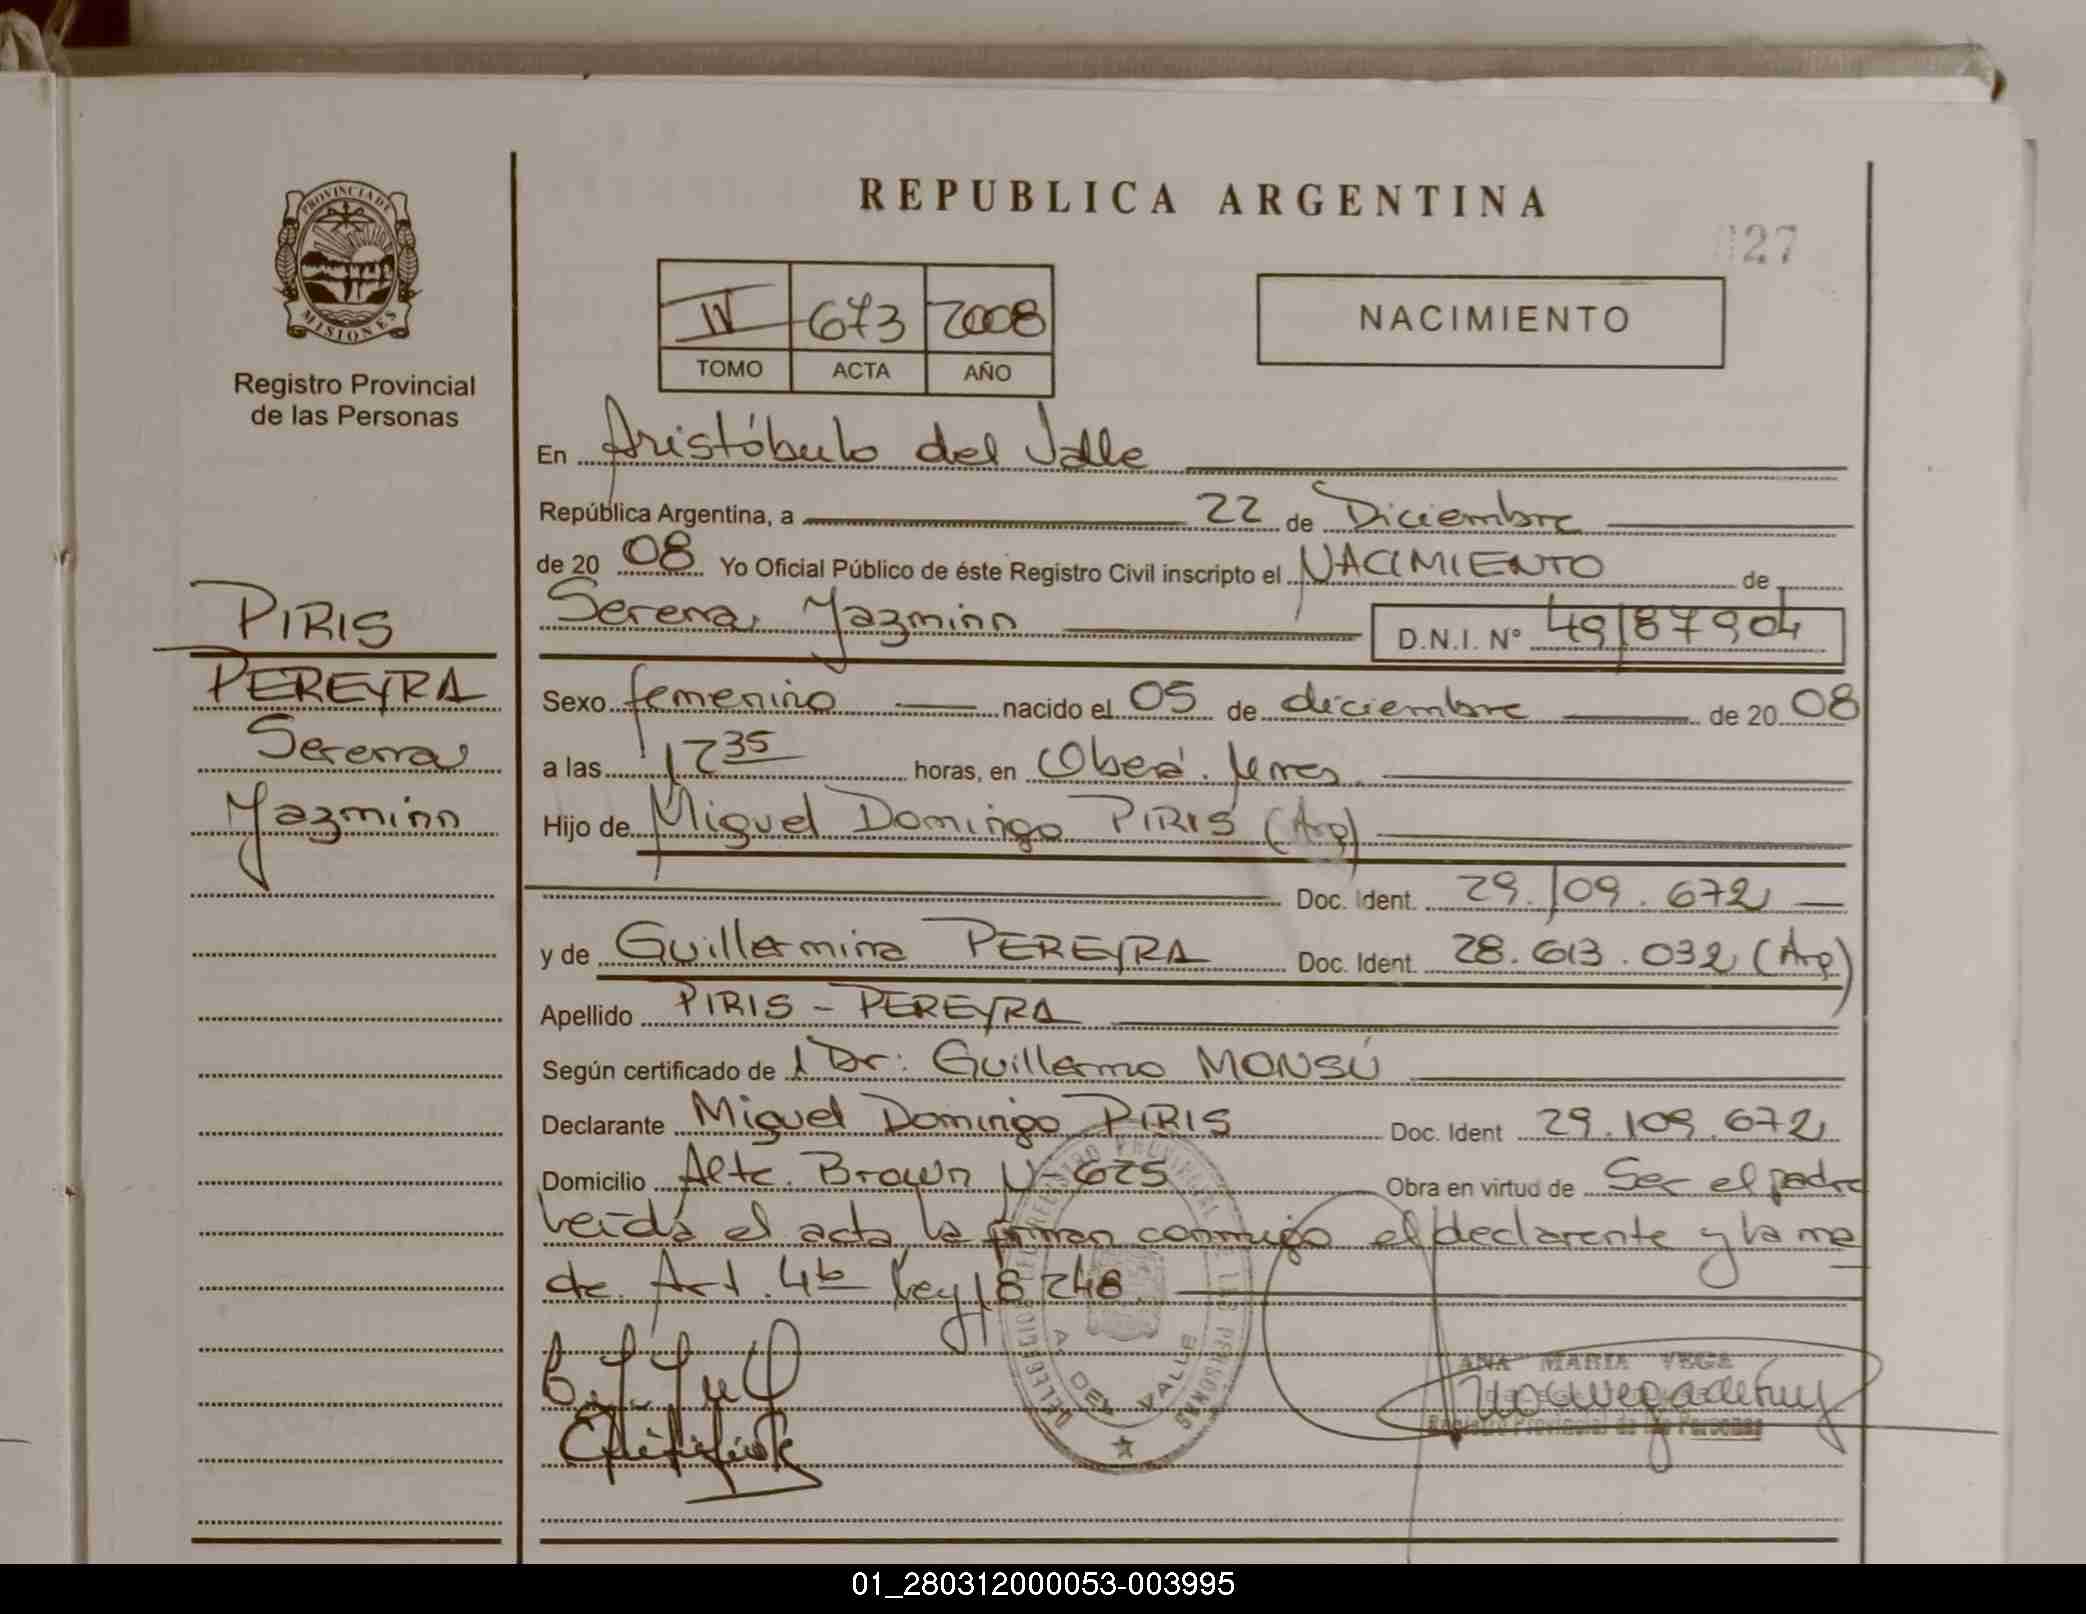 REPUBLICA ARGENTINA
27
PROVINCIA DE MISIONES
Registro Provincial
de las Personas
IV 673 2008
TOMO ACTA AÑO
NACIMIENTO
En Aristóbulo del Valle
República Argentina, a 22 de Diciembre
de 20 08 Yo Oficial Público de éste Registro Civil inscripto el NACIMIENTO de
Serena Yazminn D.N.I. N° 49187904
PIRIS
PEREYRA
Serena
Yazminn
Sexo femenino nacido el 05 de diciembre de 20 08
a las 17 35 horas, en Oberá.
Hijo de Miguel Domingo PIRIS (Arg)
Doc. Ident. 29.109.672
y de Guillermina PEREYRA Doc. Ident. 28.613.032 (Arg)
Apellido PIRIS - PEREYRA
Según certificado de Dr: Guillermo MONSÚ
Declarante Miguel Domingo PIRIS Doc. Ident 29.109.672
Domicilio Alte. Brown N° 625 Obra en virtud de Ser el padre
leída el acta la firman conmigo el declarante y la ma
dre. Art. 4to ley 18248
A. DEL VALLE
ANA MARIA VEGA
Registro Provincial de las Personas
01_280312000053-003995